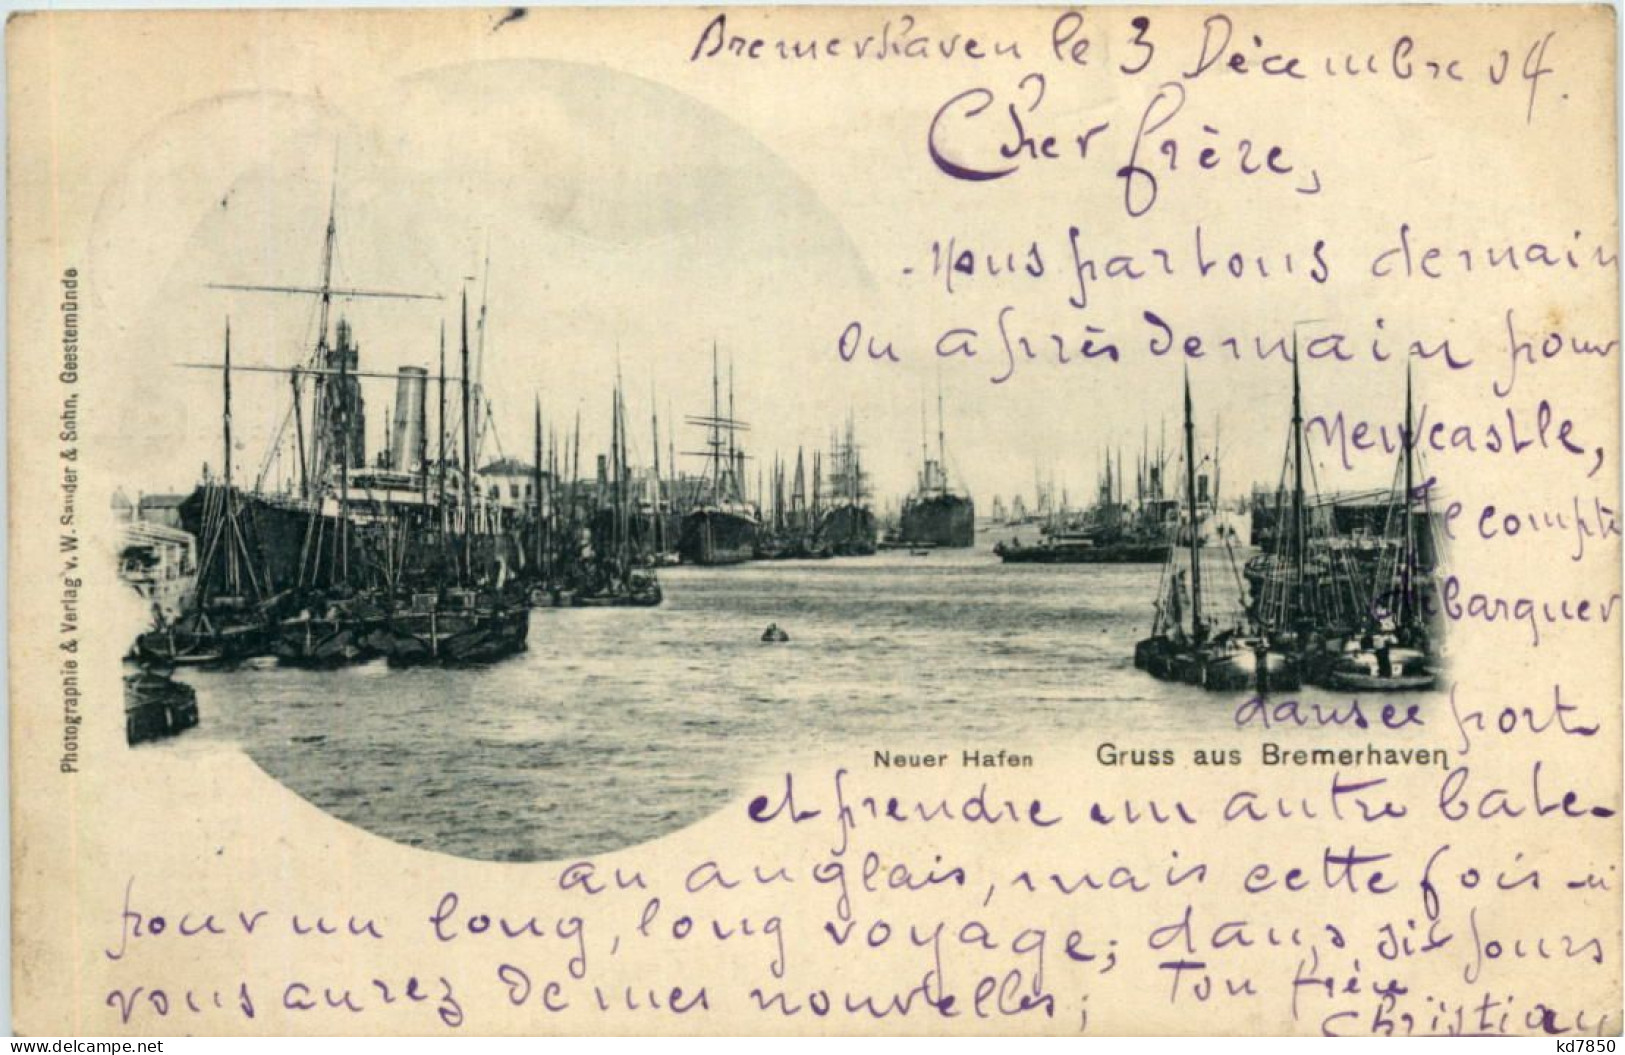 Bremerhaven le 3 Décembre 04.
Cher frère,
Nous partons demain
ou après demain pour
Newcastle,
Je compte
débarquer
dans ce port
Photographie & Verlag v. W. Sander & Sohn, Geestemünde
Neuer Hafen Gruss aus Bremerhaven
et prendre un autre bate-
au anglais, mais cette fois-ci
pour un long, long voyage; dans six jours
vous aurez de mes nouvelles; Ton frère
Christian
delcampe.net
kd7850